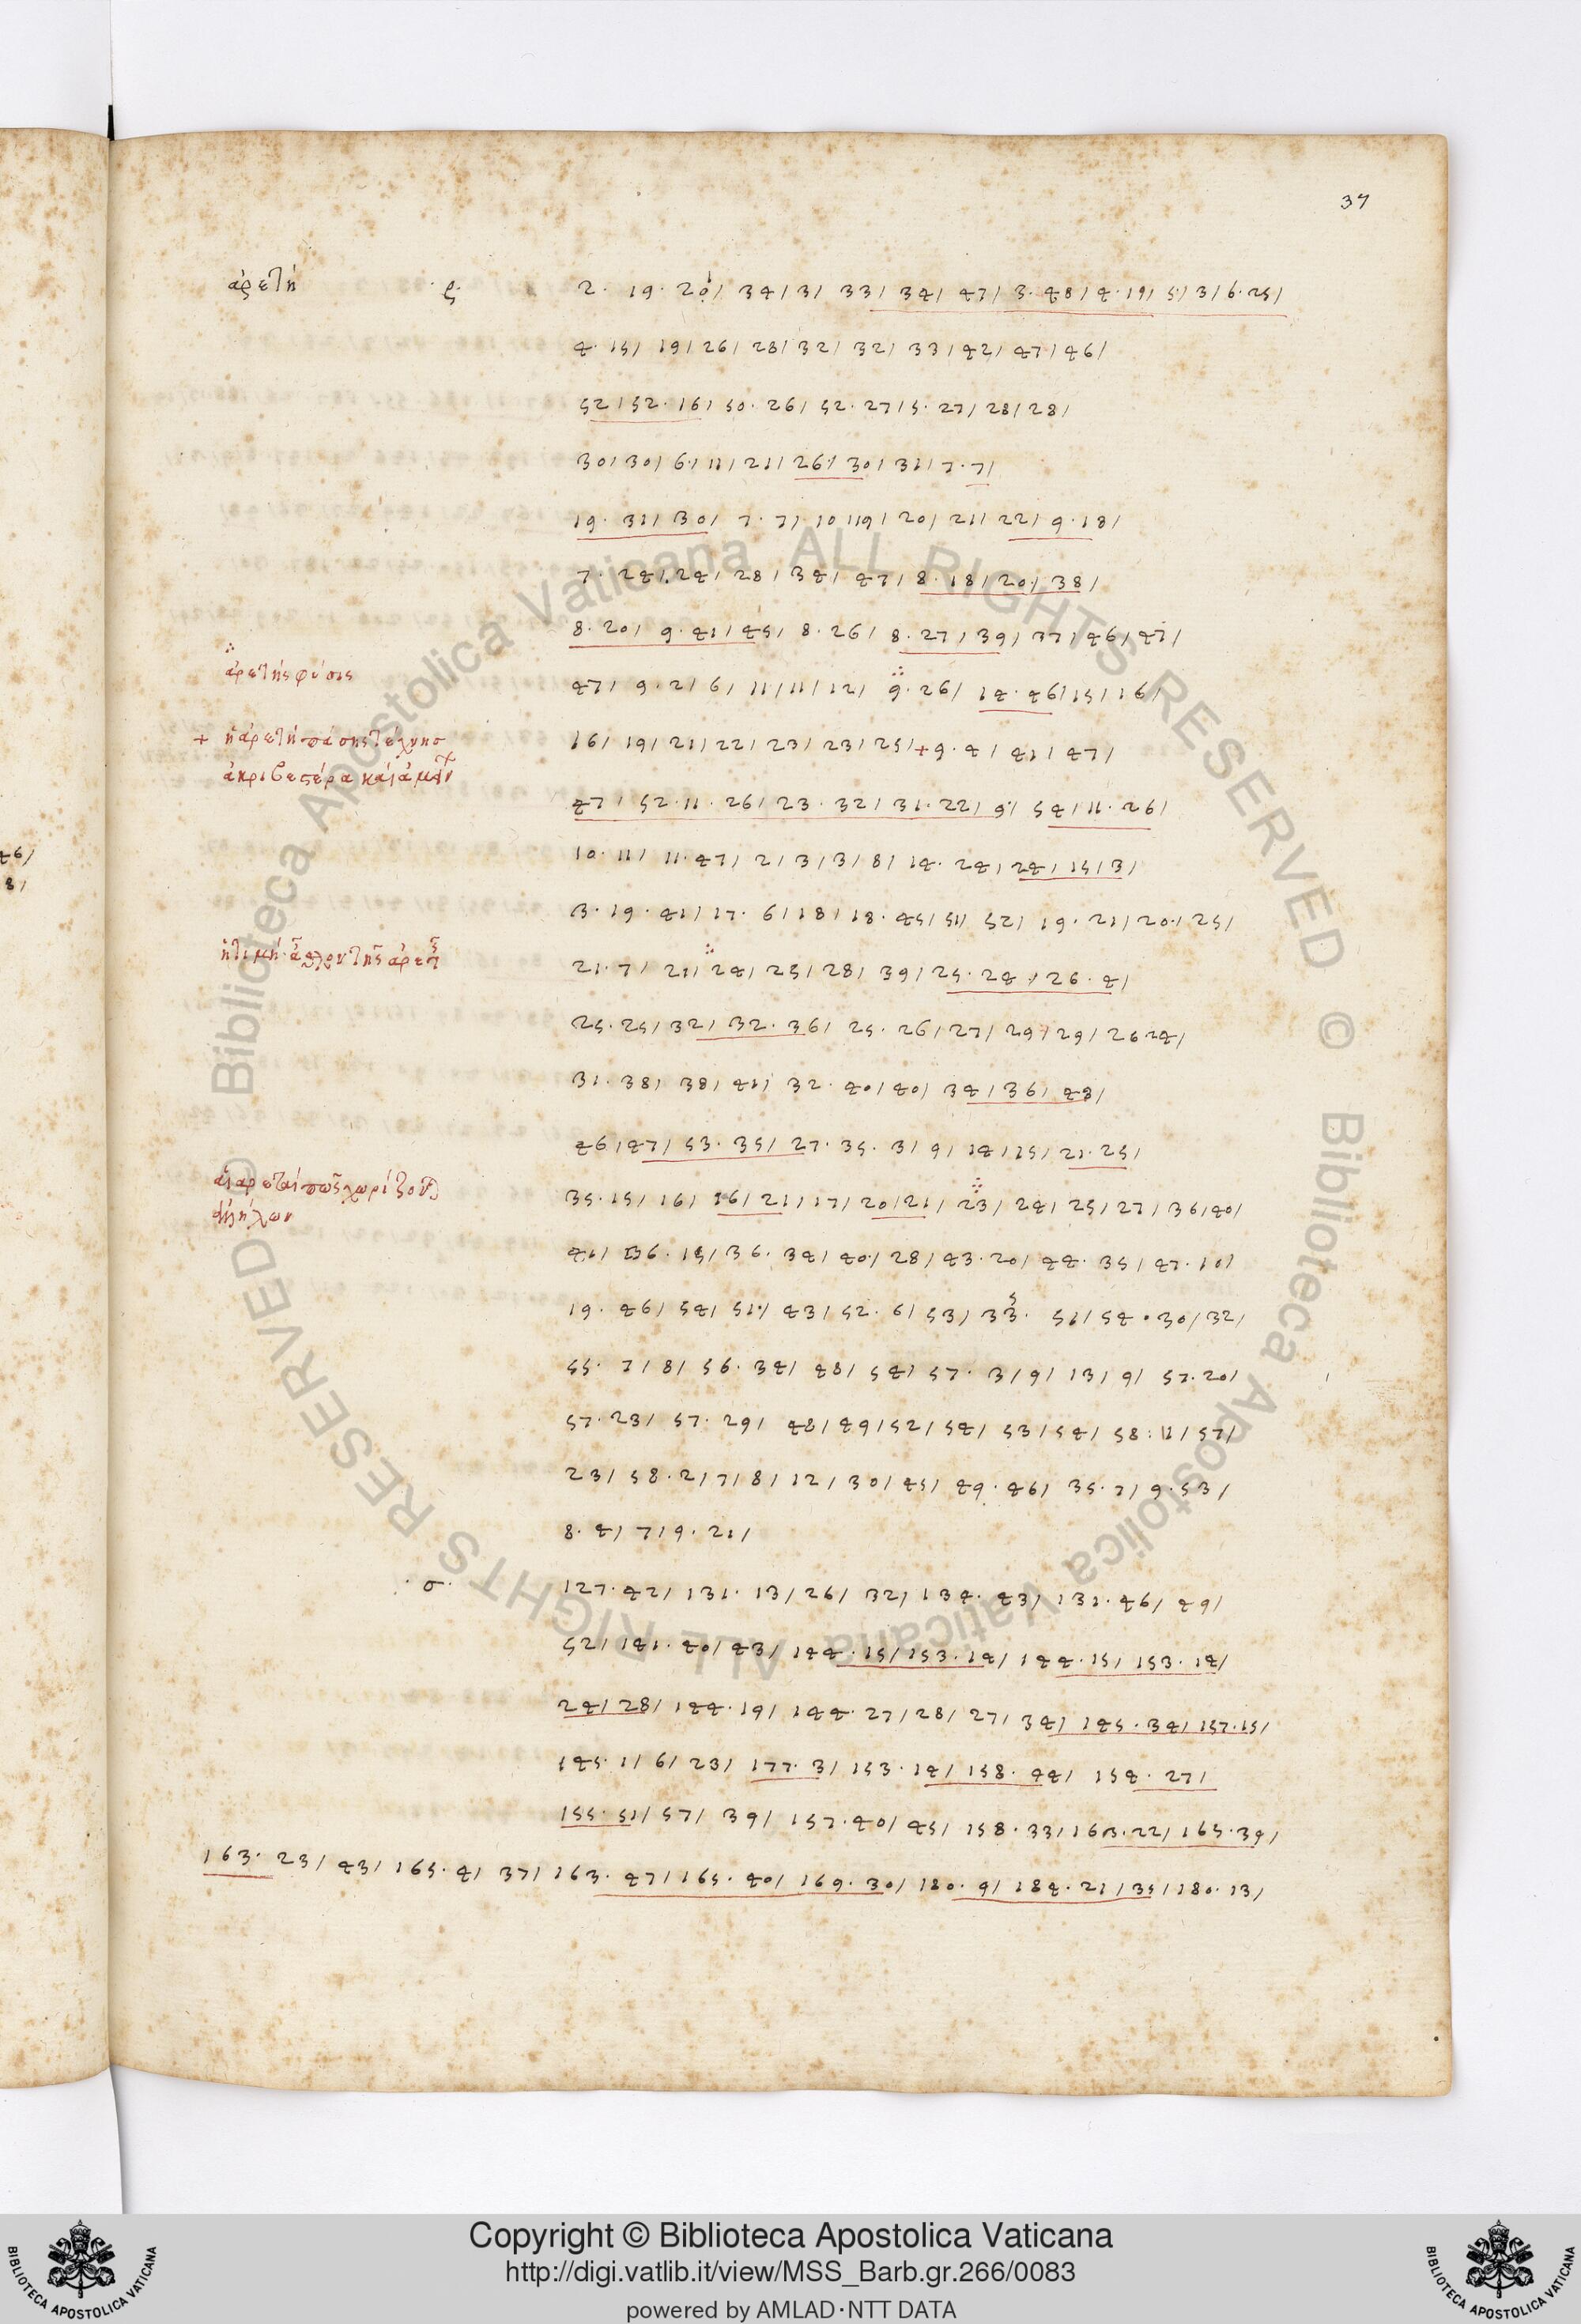 37
ἀρετή ·ρ· 2· 19· 20/ 34/3/ 33/ 34/ 47/ 3·48/4·19/ 5·/3/6·25/
4·15/ 19/26/ 28/32/ 32/ 33/42/ 47/46/
52/52·16/ 50·26/ 52·27/5·27/28/28/
30/30/ 6·/11/21/26·/30/31/7·7/
19·31/30/ 7·7/ 10/19/ 20/ 21/ 22/ 9·18/
7·24/.24/ 28/34/ 47/8·18/20/38/
8·20/ 9·41/45/ 8·26/ 8·27/39/37/46/47/
ἀρετῆς φύσις 47/ 9·2/6/ 11/11/12/ 9·26/ 14·46/15/16/
+ ἡ ἀρετὴ πάσης τέχνης 16/ 19/21/22/23/23/25/+9·4/ 41/47/
ἀκριβεστέρα καὶ ἀμείν
47/ 52·11·26/ 23·32/31·22/ 9·/ 54/11·26/
46/
10·11/ 11·47/ 2/3/3/8/ 14·24/24/15/3/
8/
3·19·41/ 17·6/18/18·45/51/ 52/ 19·21/20·/25/
ἡ τιμὴ ἆθλον τῆς ἀρετῆς 21·7/ 21/24/25/28/ 39/25·24·/26·4/
25·25/32/ 32·36/ 25·26/27/29/29/26 24/
31·38/ 38/ 41/ 32·40/40/ 34/36/48/
46/47/ 53·35/ 27·35·3/9/ 14/15/21·25/
αἱ ἀρεταὶ πῶς χωρίζον 35·15/ 16/ 16/21/17/ 20/21/ 23/ 24/25/27/36/40/
ἀλλήλων
41/ 36·15/36·34/40·/28/43·20/ 44·35/47·10/
19·46/54/51·/ 43/52·6/53/ 33· 51/54·30/32/
55·7/8/ 56·34/ 48/54/ 57·3/9/ 13/9/ 57·20/
57·23/ 57·29/ 48/49/52/54/ 53/54/ 58:11/57/
23/58·2/7/8/12/30/45/ 49·46/ 35·7/9·53/
8·4/ 7/9·21/
·σ· 127·42/ 131·13/26/ 32/ 134·43/ 131·46/ 49/
52/ 141·40/43/ 144·15/153·14/ 144·15/ 153·14/
24/28/ 144·19/ 144·27/28/ 27/ 34/ 145·34/157·15/
145·1/6/23/ 177·3/153·14/158·44/ 154·27/
155·51/57/ 39/ 157·40/45/ 158·33/163·22/165·39/
163·23/ 43/165·4/ 37/ 163·47/165·40/ 169·30/ 180·9/184·21/35/180·13/
Copyright © Biblioteca Apostolica Vaticana
http://digi.vatlib.it/view/MSS_Barb.gr.266/0083
powered by AMLAD·NTT DATA